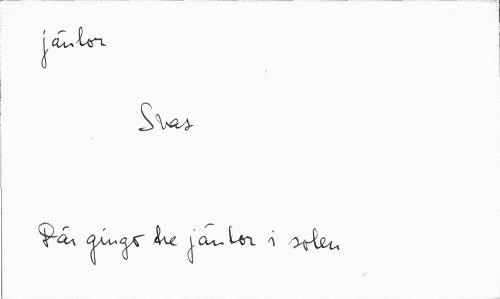 jäntor
Svas
Där gingo tre jäntor i solen